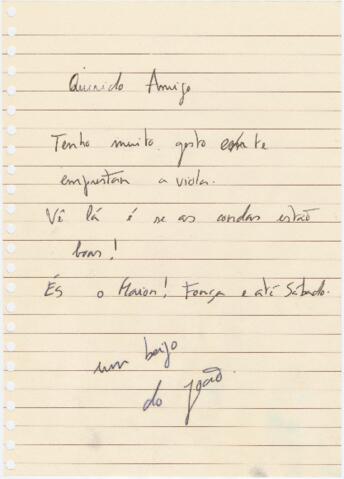 Querido Amigo
Tenho muito gosto em te
emprestar a viola.
Vê lá é se as cordas estão
boas!
És o Maior! Força e até Sábado.
um beijo
do João.